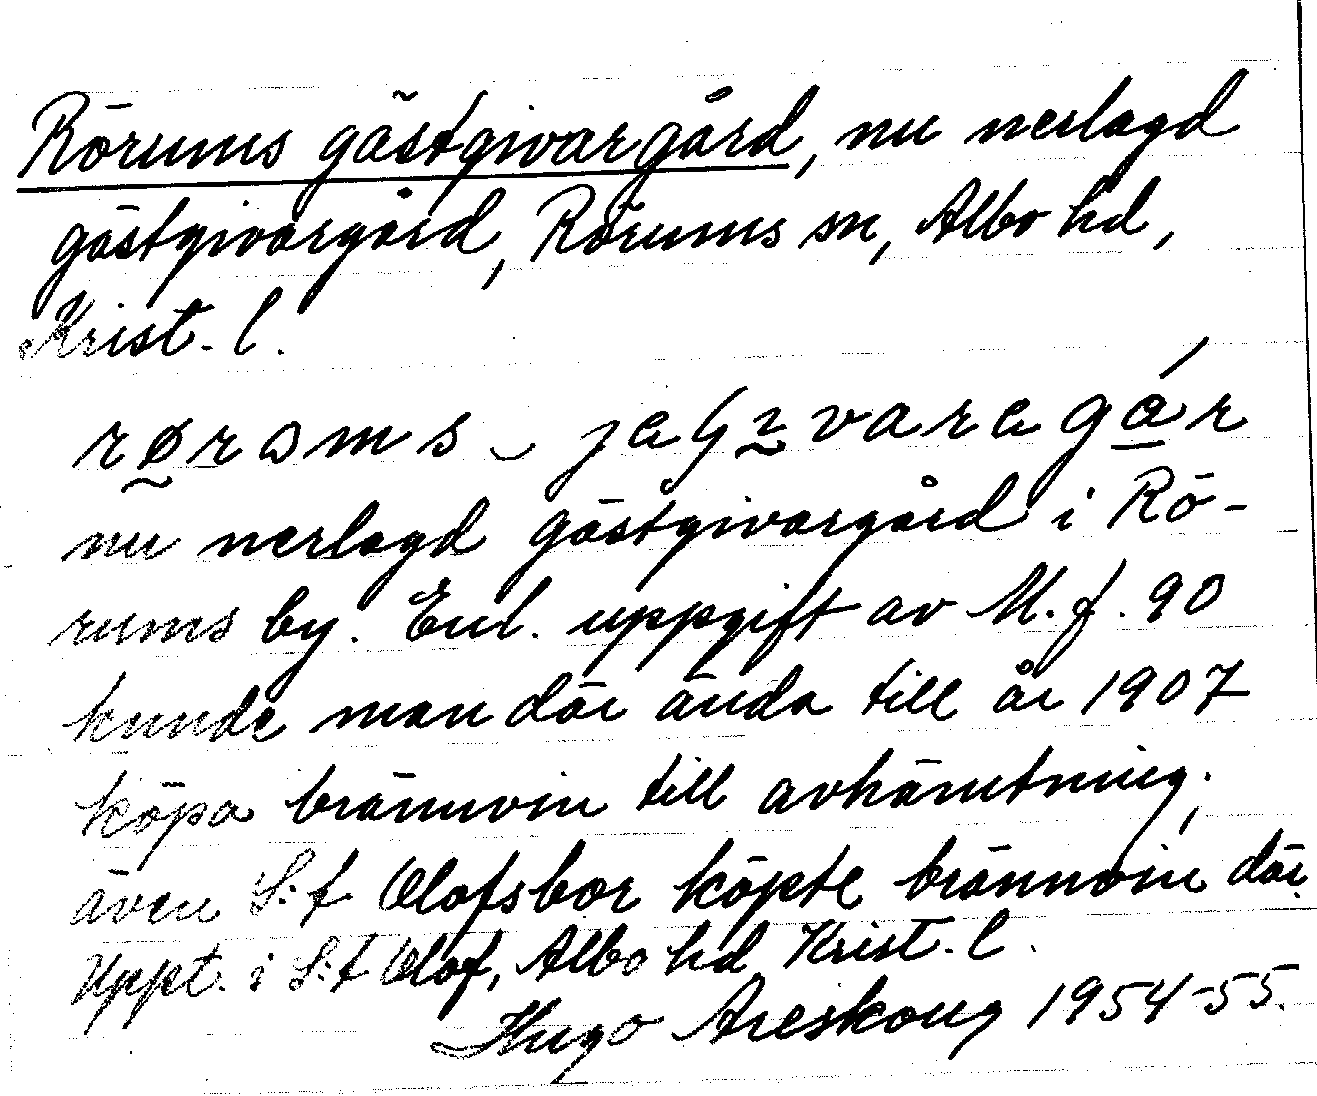 Rörums gästgivargård, nu nerlagd
gästgivargård, Rörums sn, Albo hd,
Krist. l.
nu nerlagd gästgivargård i Rö-
rums by. Enl. uppgift av M. f. 90
kunde man där ända till år 1907
köpa brännvin till avhämtning;
även S:t Olofsbor köpte brännvin där.
Uppt. i S:t Olof, Albo hd, Krist. l.
Hugo Areskoug 1954-55.